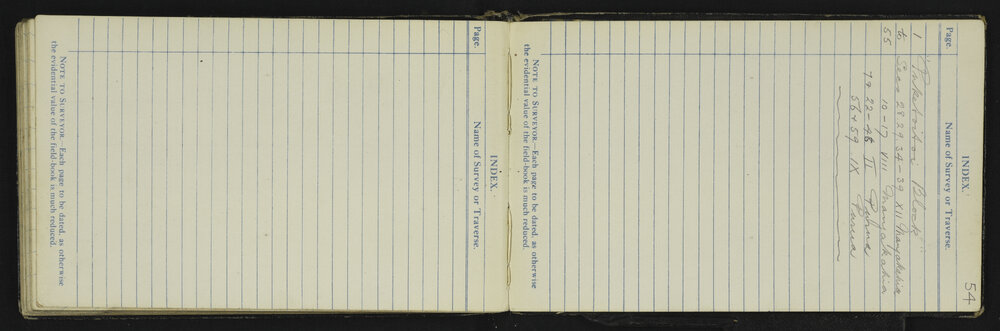 54
INDEX.
Page. Name of Survey or Traverse.
1 Block"
to Secs 28 29 34-39 XII
55 10-17 VIII
7 9 22-26 II
56 & 59 IX
NOTE TO SURVEYOR.—Each page to be dated, as otherwise
the evidential value of the field-book is much reduced.
INDEX.
Page. Name of Survey or Traverse.
NOTE TO SURVEYOR.—Each page to be dated, as otherwise
the evidential value of the field-book is much reduced.